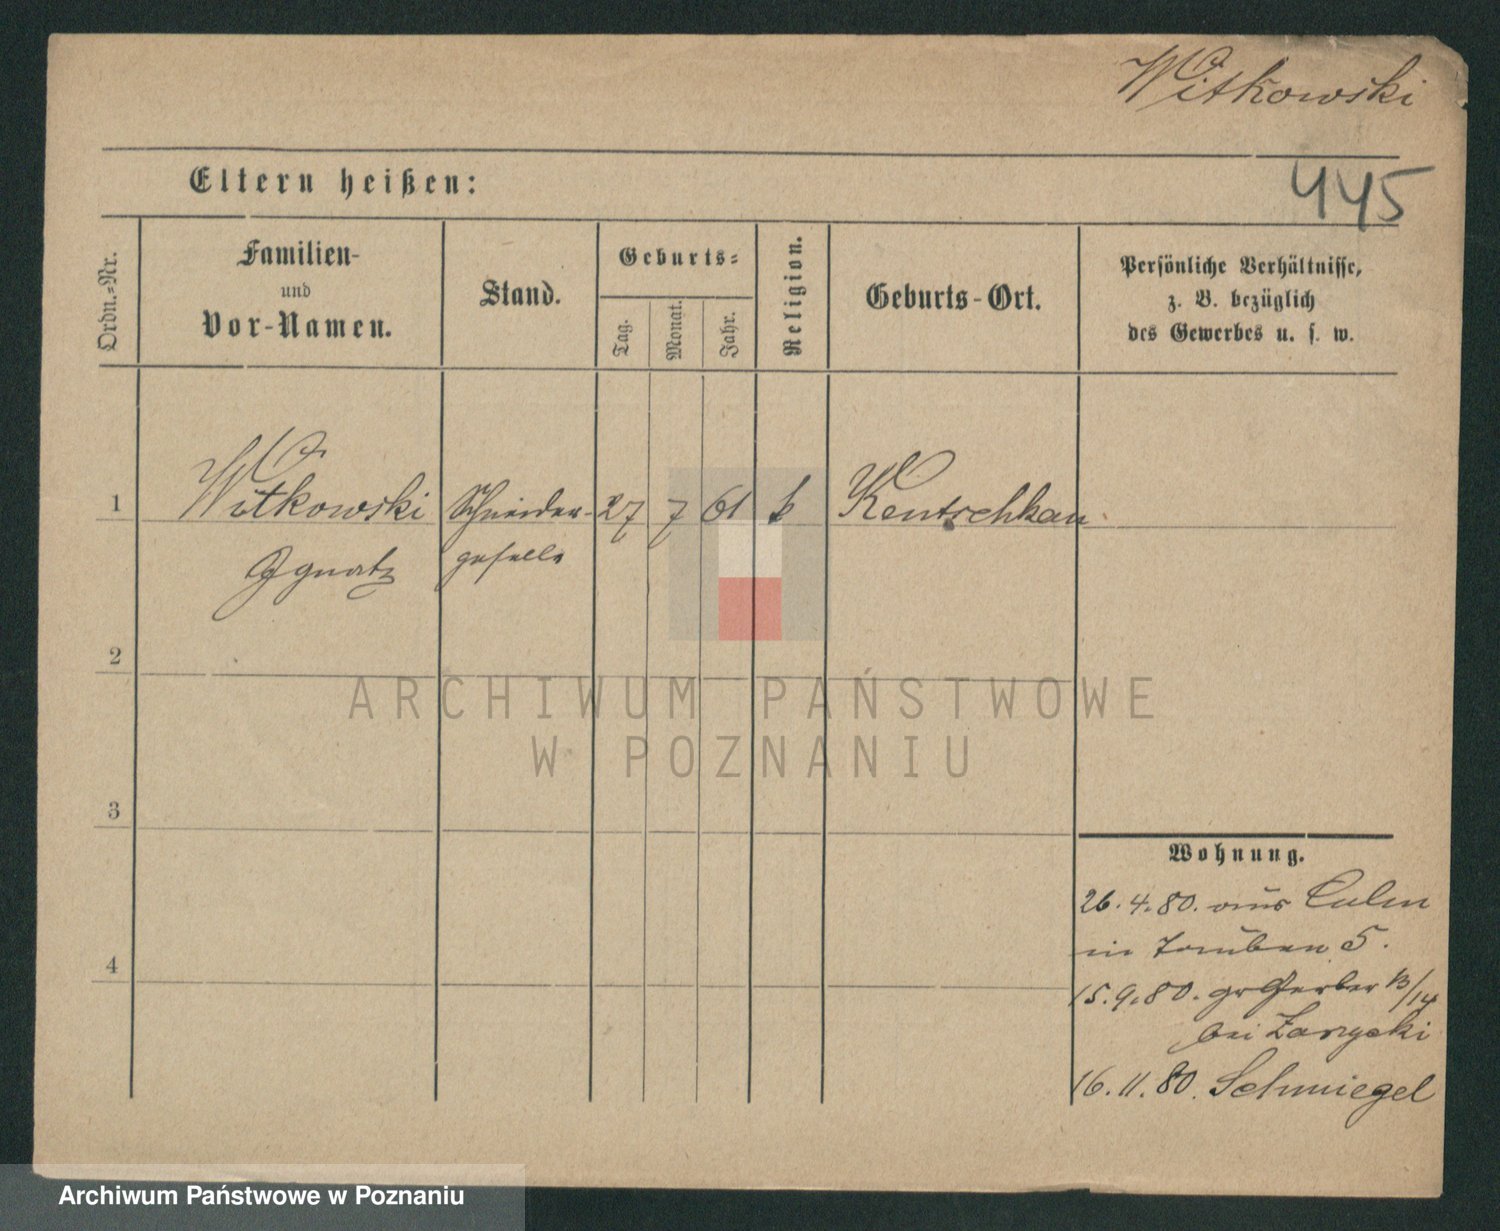 Witkowski
445
Eltern heißen:
Ordn.-Nr.
Familien-
und
Vor-Namen.
Stand.
Geburts-
Tag.
Monat.
Jahr.
Religion.
Geburts-Ort.
Persönliche Verhältnisse,
z. B. bezüglich
des Gewerbes u. s. w.
1 Witkowski Schneider- 27 7 61 k Kentschkau
Ignatz geselle
2
ARCHIWUM PAŃSTWOWE
W POZNANIU
3
Wohnung.
26.4.80. aus Culm
in Tauben 5.
4
15.9.80. gr Gerber 13/14
bei
16.11.80. Schmiegel
Archiwum Państwowe w Poznaniu